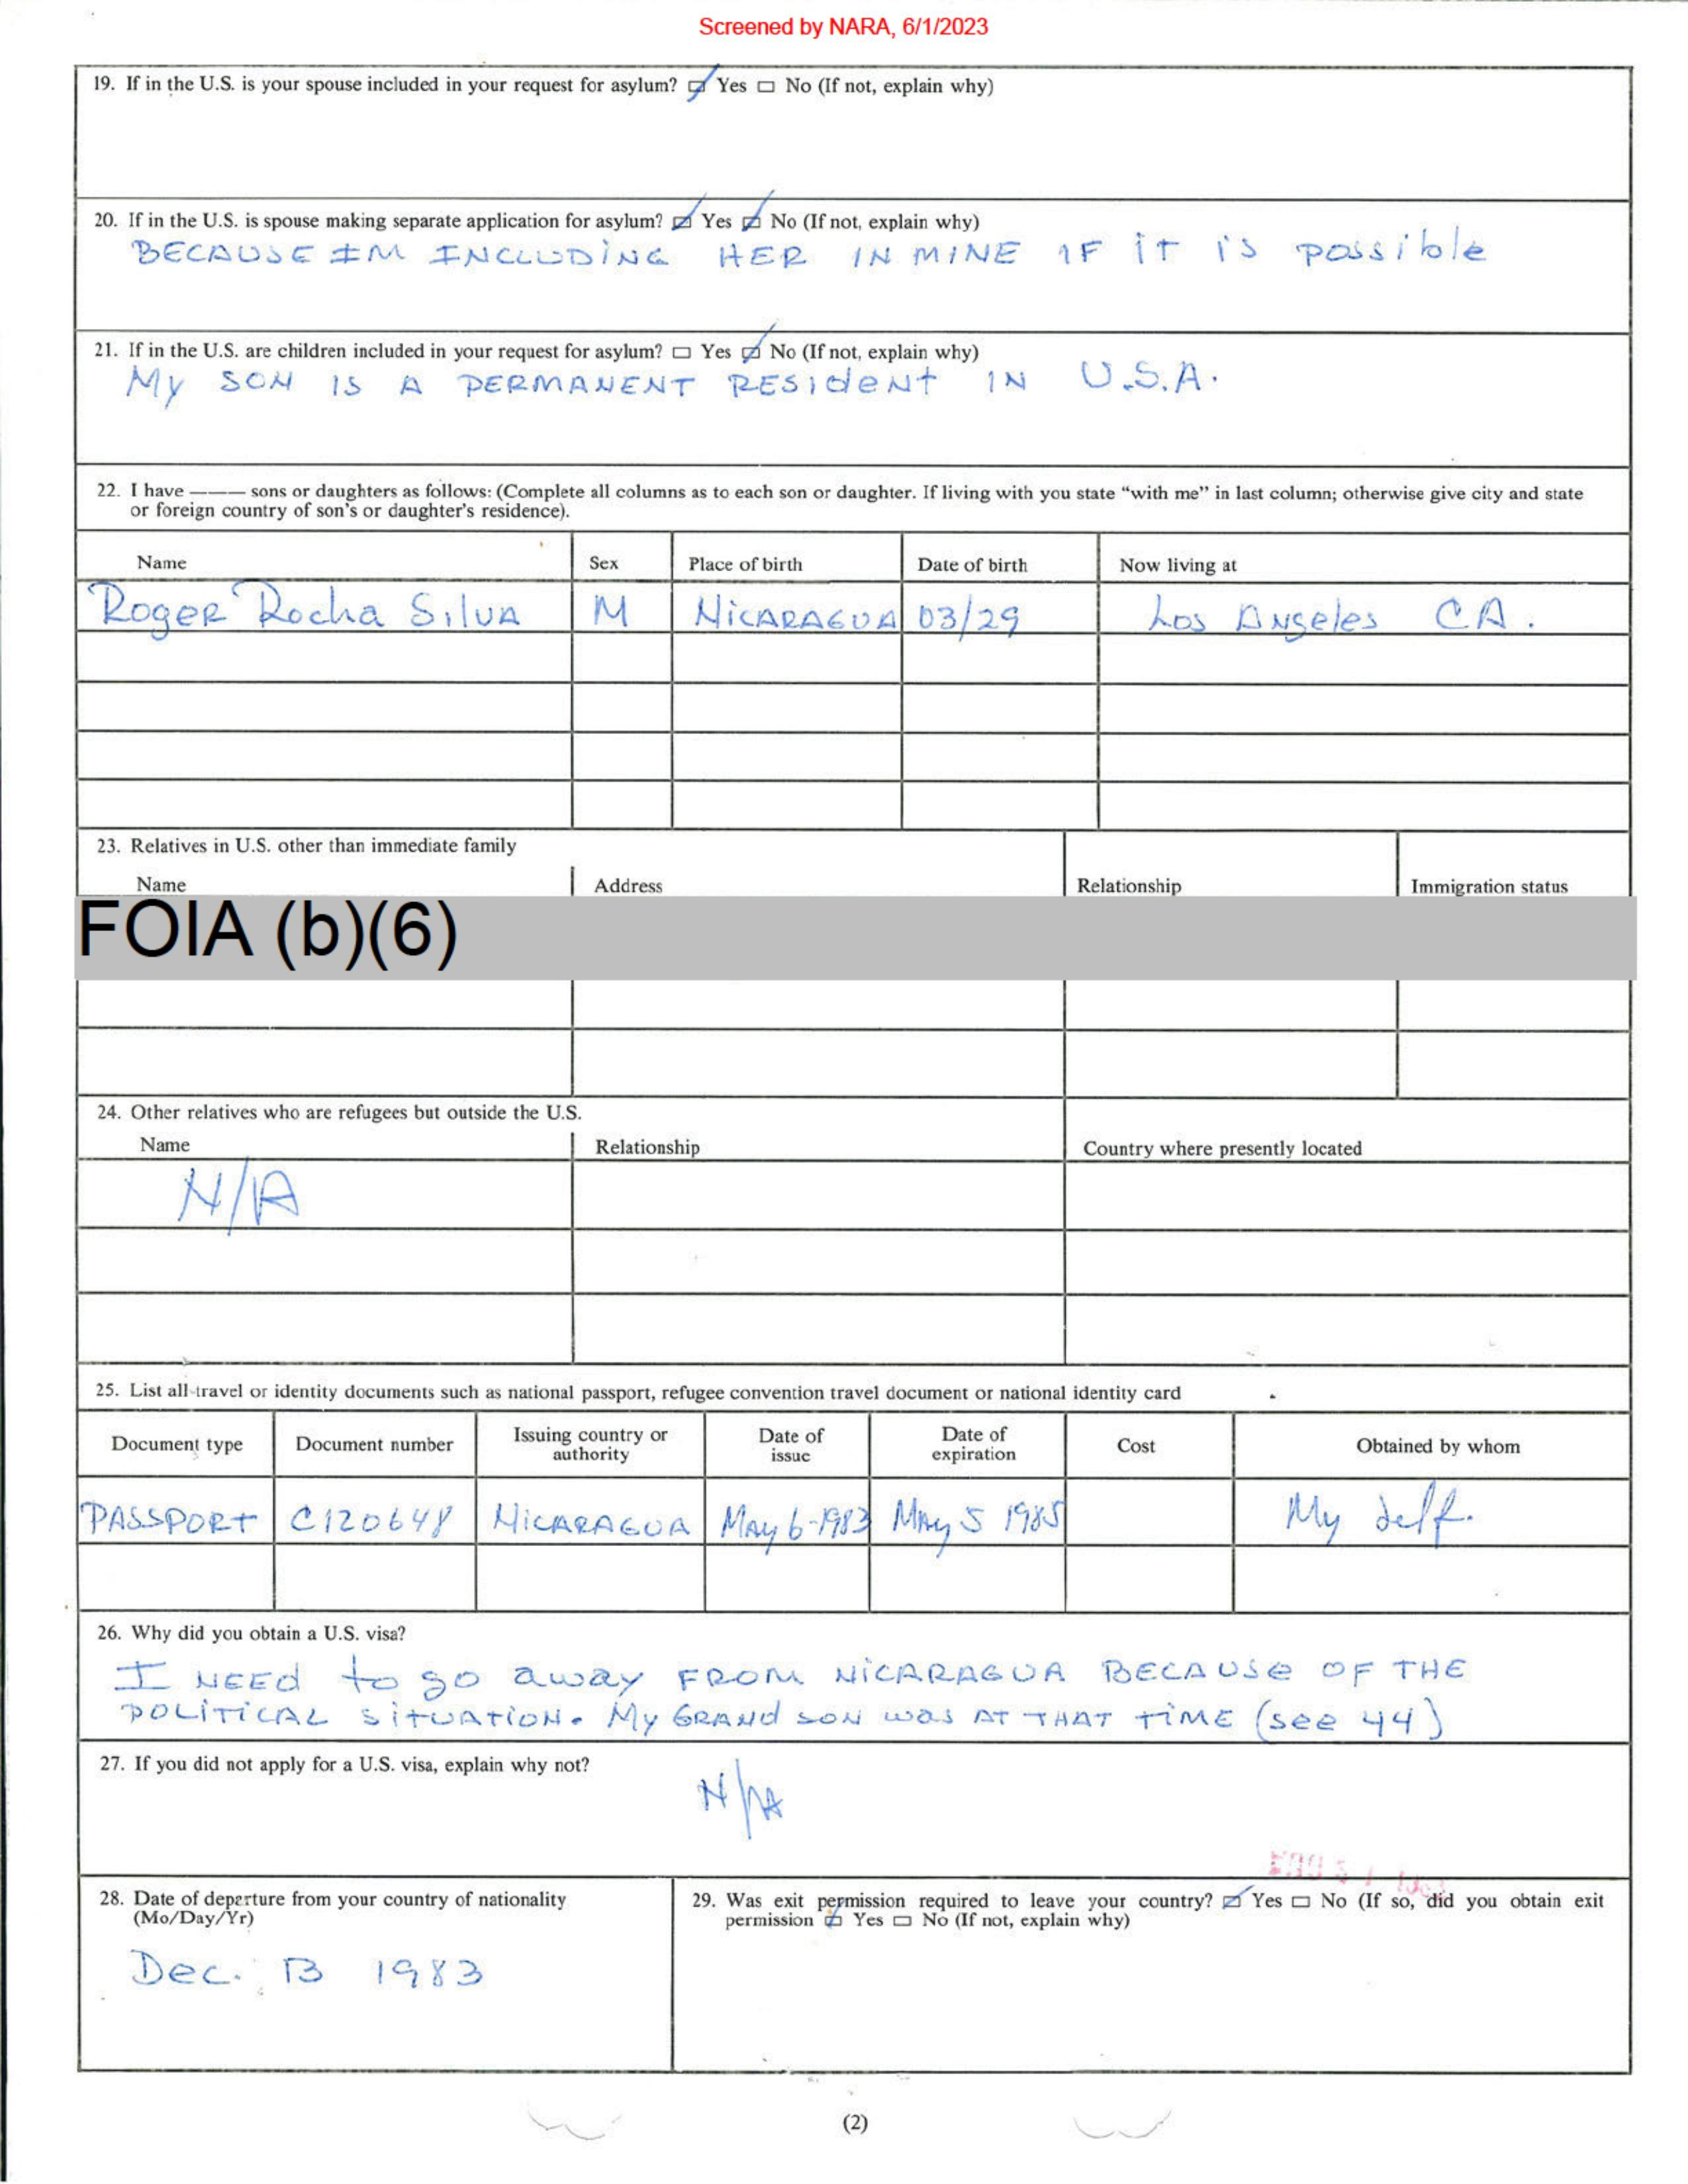 Screened by NARA, 6/1/2023
19. If in the U.S. is your spouse included in your request for asylum? ☑ Yes ☐ No (If not, explain why)
20. If in the U.S. is spouse making separate application for asylum? ☑ Yes ☑ No (If not, explain why)
BECAUSE IM INCLUDING HER IN MINE IF IT IS POSSIBLE
21. If in the U.S. are children included in your request for asylum? ☐ Yes ☑ No (If not, explain why)
My SON IS A PERMANENT RESIdeNt IN U.S.A.
22. I have —— sons or daughters as follows: (Complete all columns as to each son or daughter. If living with you state “with me” in last column; otherwise give city and state
or foreign country of son's or daughter's residence).
Name Sex Place of birth Date of birth Now living at
Roger Rocha Silva M NICARAGUA 03/29 Los Angeles CA.
23. Relatives in U.S. other than immediate family
Name Address Relationship Immigration status
FOIA (b)(6)
24. Other relatives who are refugees but outside the U.S.
Name Relationship Country where presently located
N/A
25. List all travel or identity documents such as national passport, refugee convention travel document or national identity card
Document type Document number Issuing country or authority Date of issue Date of expiration Cost Obtained by whom
PASSPORT C120648 NICARAGUA May 6-1983 May 5 1985 My self.
26. Why did you obtain a U.S. visa?
I NEEd to go away FROM NICARAGUA BECAUSe OF THE
POLITICAL SITUATION. My GRANd SON was AT THAT TIME (see 44)
27. If you did not apply for a U.S. visa, explain why not?
N/A
28. Date of departure from your country of nationality
(Mo/Day/Yr)
Dec. 13 1983
29. Was exit permission required to leave your country? ☑ Yes ☐ No (If so, did you obtain exit
permission ☑ Yes ☐ No (If not, explain why)
(2)